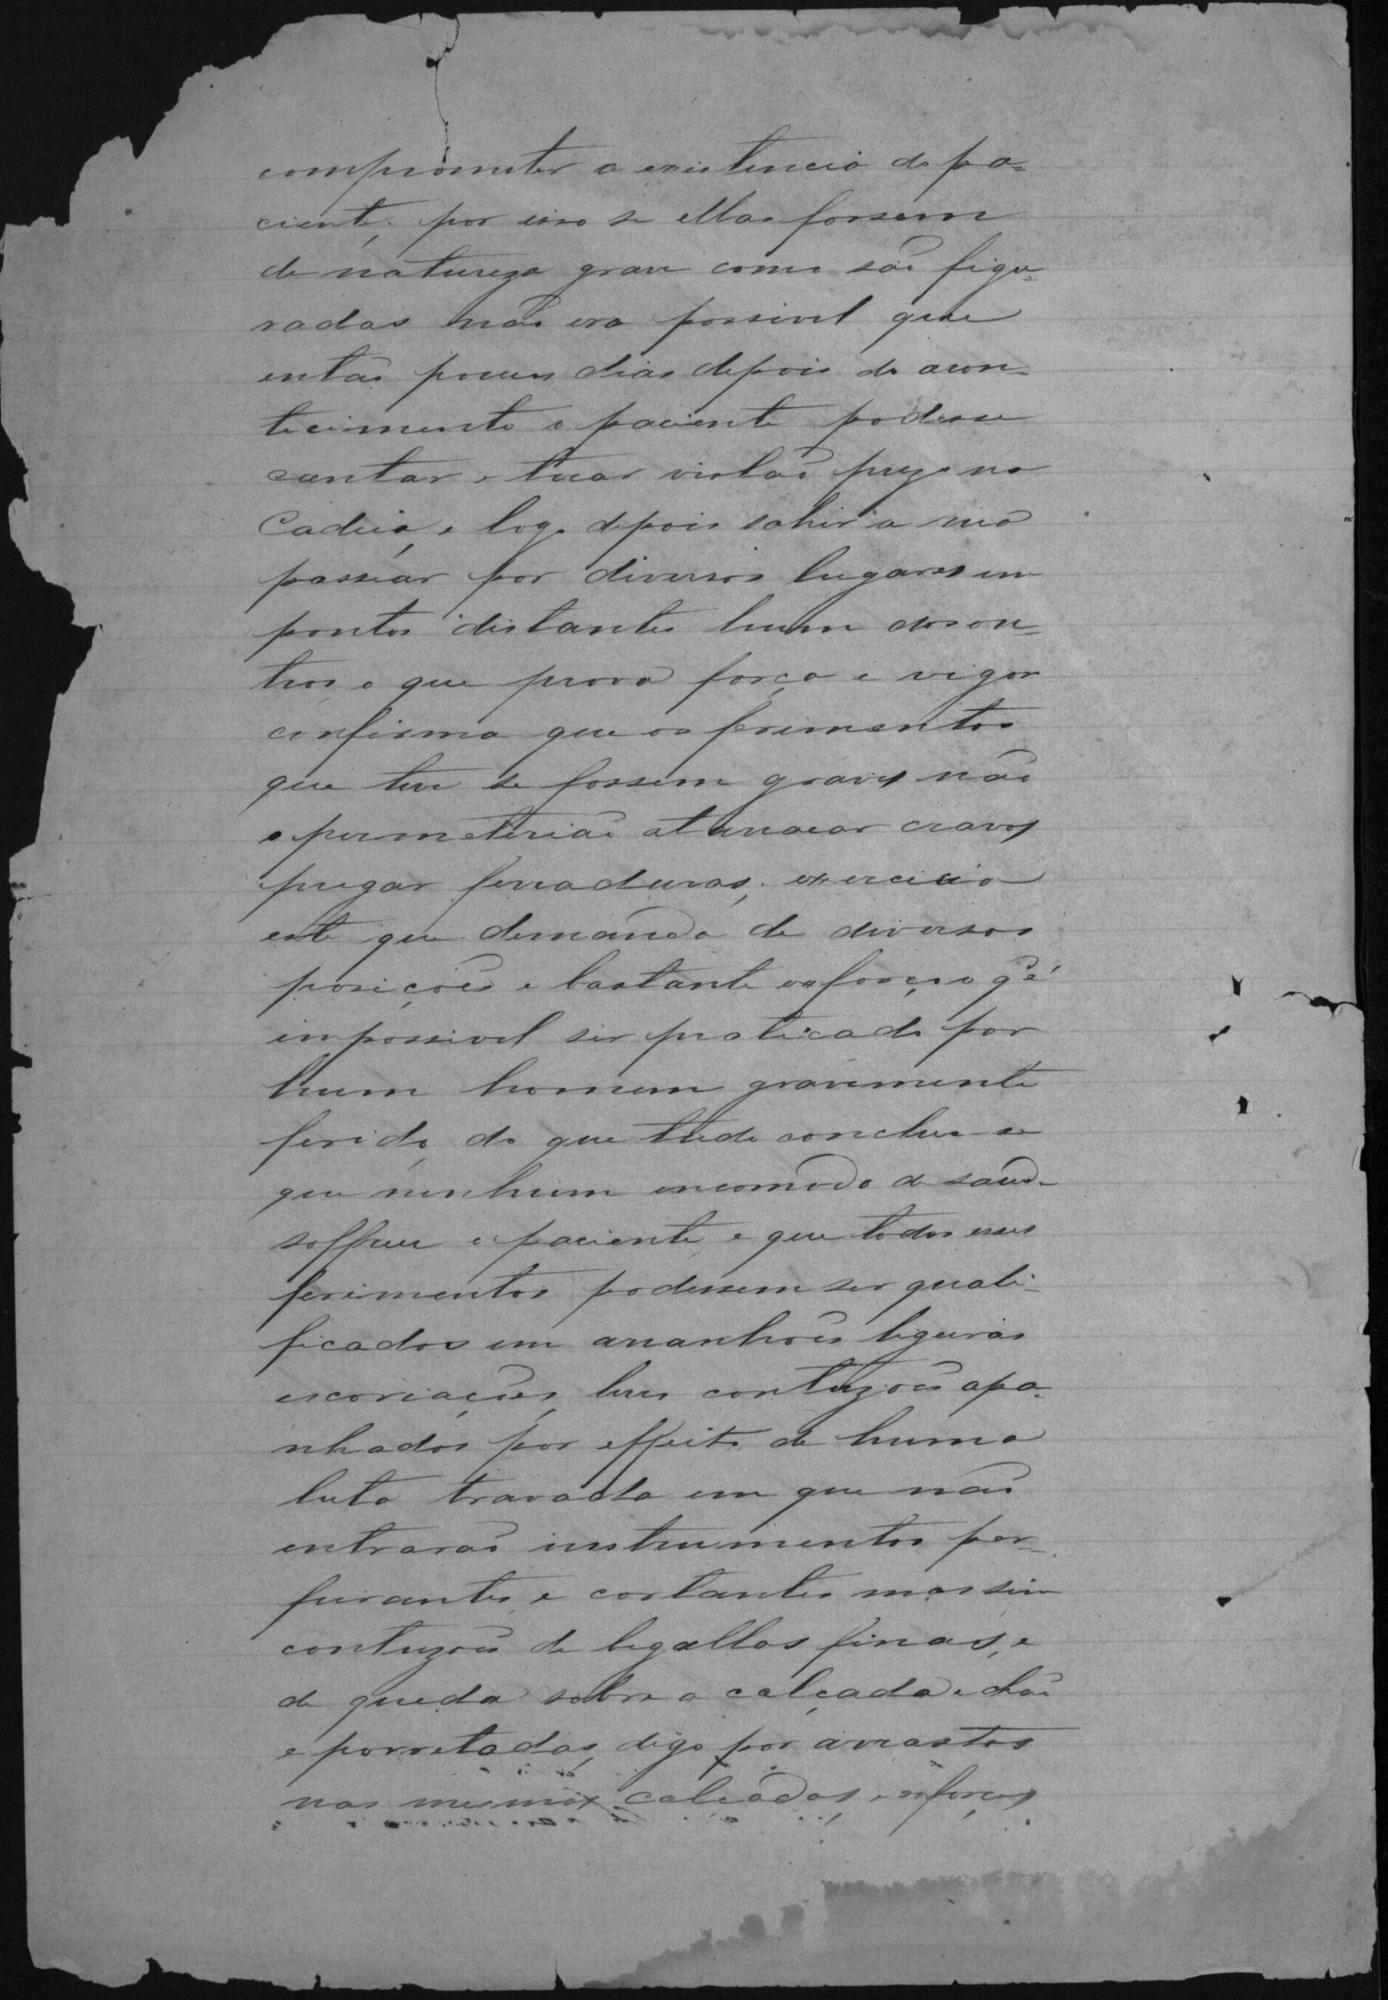 comprometer a existencia do pa-
ciente, por isso se ellas fossem
de natureza grave como são figu-
radas não era possivel que
então poucos dias depois do acon-
tecimento o paciente podesse
cantar e tocar violão prezo na
Cadeia, e logo depois sahir a rua
passear por diversos lugares em
pontos distantes hum dos ou-
tros o que prova força e vigor
confirma que os ferimentos
que teve se fossem graves não
o permeterião atanacar cravos
pregar ferraduras, exercicio
este que demanda de diversos
posições e bastante exforço q' é
impossivel ser praticado por
hum homem gravemente
ferido, do que tudo conclue-se
que nenhum encommodo de saude
soffreu o paciente, e que todos esses
ferimentos podessem ser quali-
ficados em arranhões ligeiras
escoriações, leves contuzões apa-
nhados por effeito de huma
luta travada em que não
entrarão instrumentos per-
furantes, e cortantes mas sim
contuzões de begallas finas, e
de queda sobre a calçada e chão
e porretadas, digo por arrastos
nas mesmas calçadas, e esforços